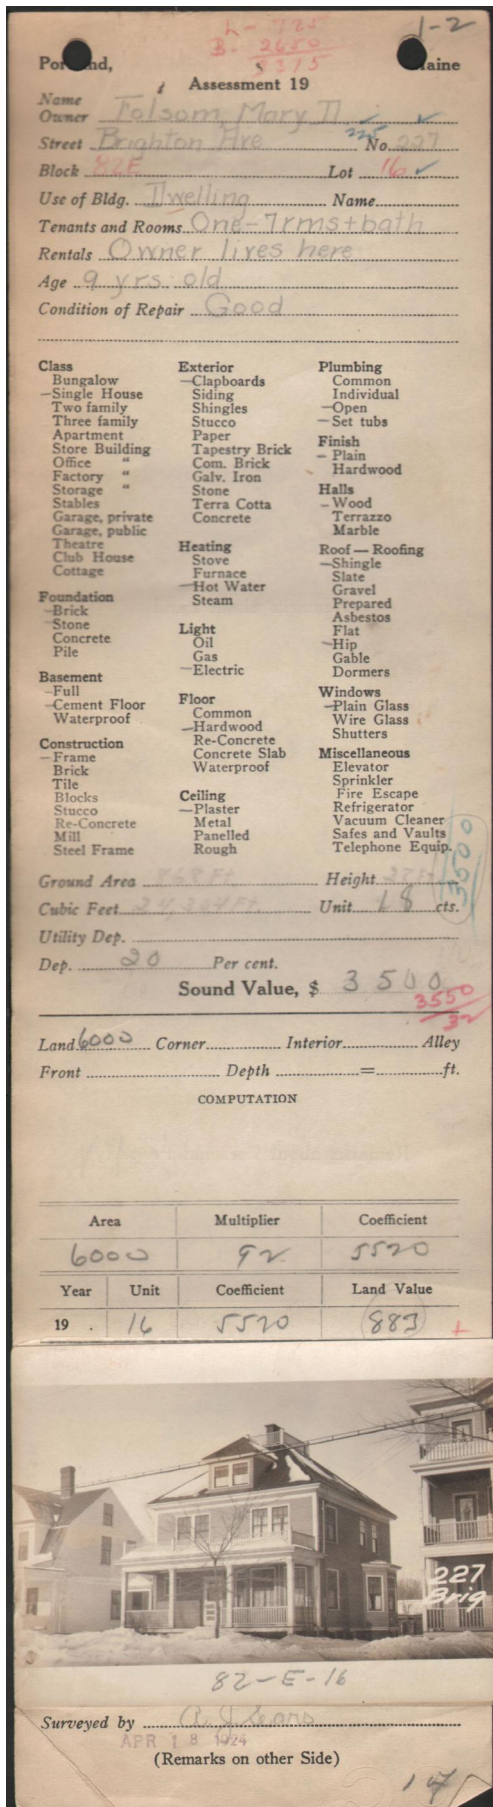 L- 725
1-2
B. 2650
$ 3375
Portland, Maine
Assessment 19
Name
Owner Folsom, Mary D
Street Brighton Ave 225 No. 227
Block 82E Lot 16
Use of Bldg. Dwelling Name
Tenants and Rooms One-7rms+bath
Rentals Owner lives here
Age 9 yrs. old
Condition of Repair Good
Class
Bungalow
Single House
Two family
Three family
Apartment
Store Building
Office "
Factory "
Storage "
Stables
Garage, private
Garage, public
Theatre
Club House
Cottage
Foundation
Brick
Stone
Concrete
Pile
Basement
Full
Cement Floor
Waterproof
Construction
Frame
Brick
Tile
Blocks
Stucco
Re-Concrete
Mill
Steel Frame
Exterior
Clapboards
Siding
Shingles
Stucco
Paper
Tapestry Brick
Com. Brick
Galv. Iron
Stone
Terra Cotta
Concrete
Heating
Stove
Furnace
Hot Water
Steam
Light
Oil
Gas
Electric
Floor
Common
Hardwood
Re-Concrete
Concrete Slab
Waterproof
Ceiling
Plaster
Metal
Panelled
Rough
Plumbing
Common
Individual
Open
Set tubs
Finish
Plain
Hardwood
Halls
Wood
Terrazzo
Marble
Roof — Roofing
Shingle
Slate
Gravel
Prepared
Asbestos
Flat
Hip
Gable
Dormers
Windows
Plain Glass
Wire Glass
Shutters
Miscellaneous
Elevator
Sprinkler
Fire Escape
Refrigerator
Vacuum Cleaner
Safes and Vaults
Telephone Equip.
3500
Ground Area 868 Ft Height 28 Ft
Cubic Feet 24,304 Ft. Unit 18 cts.
Utility Dep.
Dep. 20 Per cent.
Sound Value, $ 3500
3550
32
Land 6000 Corner Interior Alley
Front Depth = ft.
COMPUTATION
Area Multiplier Coefficient
6000 92 5520
Year Unit Coefficient Land Value
19 . 16 5520 883
227
Brig
82-E-16
Surveyed by A. J. Sears
APR 18 1924
(Remarks on other Side)